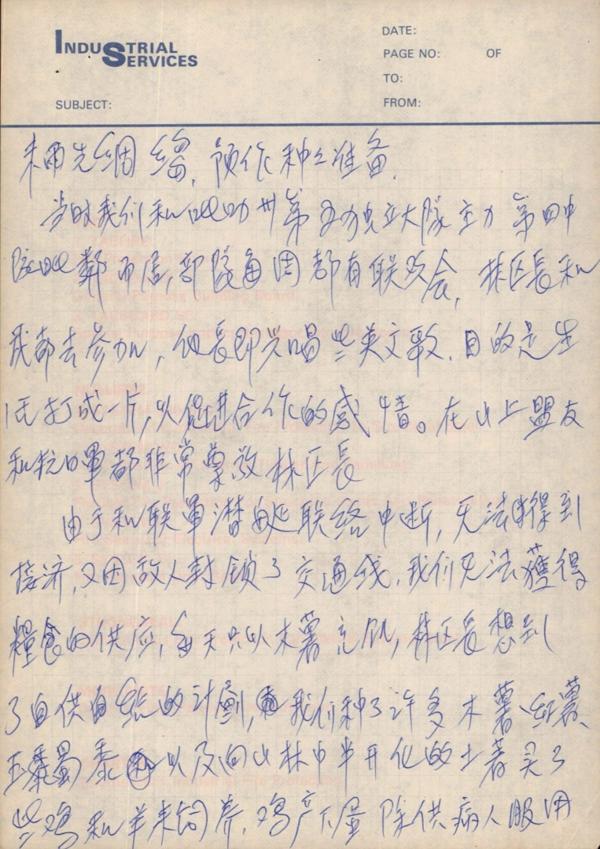 INDUSTRIAL SERVICES
DATE:
PAGE NO: OF
TO:
FROM:
SUBJECT:
未雨先绸缪,预作种种准备.
当时我们和吡叻州第五独立大队主力第四中
队毗鄰而居,部隊每周都有联欢会,林区長和
我都去参加,他長即兴唱些英文歌.目的是生
活打成一片,以促进合作的感情。在山上盟友
和抗日軍都非常尊敬林区長
由于和联軍潜艇联络中断,无法獲得到
接济,又因敌人封锁了交通线,我们无法獲得
糧食的供应,每天只以木薯充饥,林区長想到
了自供自给的计劃,我们种了许多木薯、红薯、
玉蜀黍以及向山林中半开化的土著买了
些鸡和羊来饲养,鸡产下蛋除供病人服用